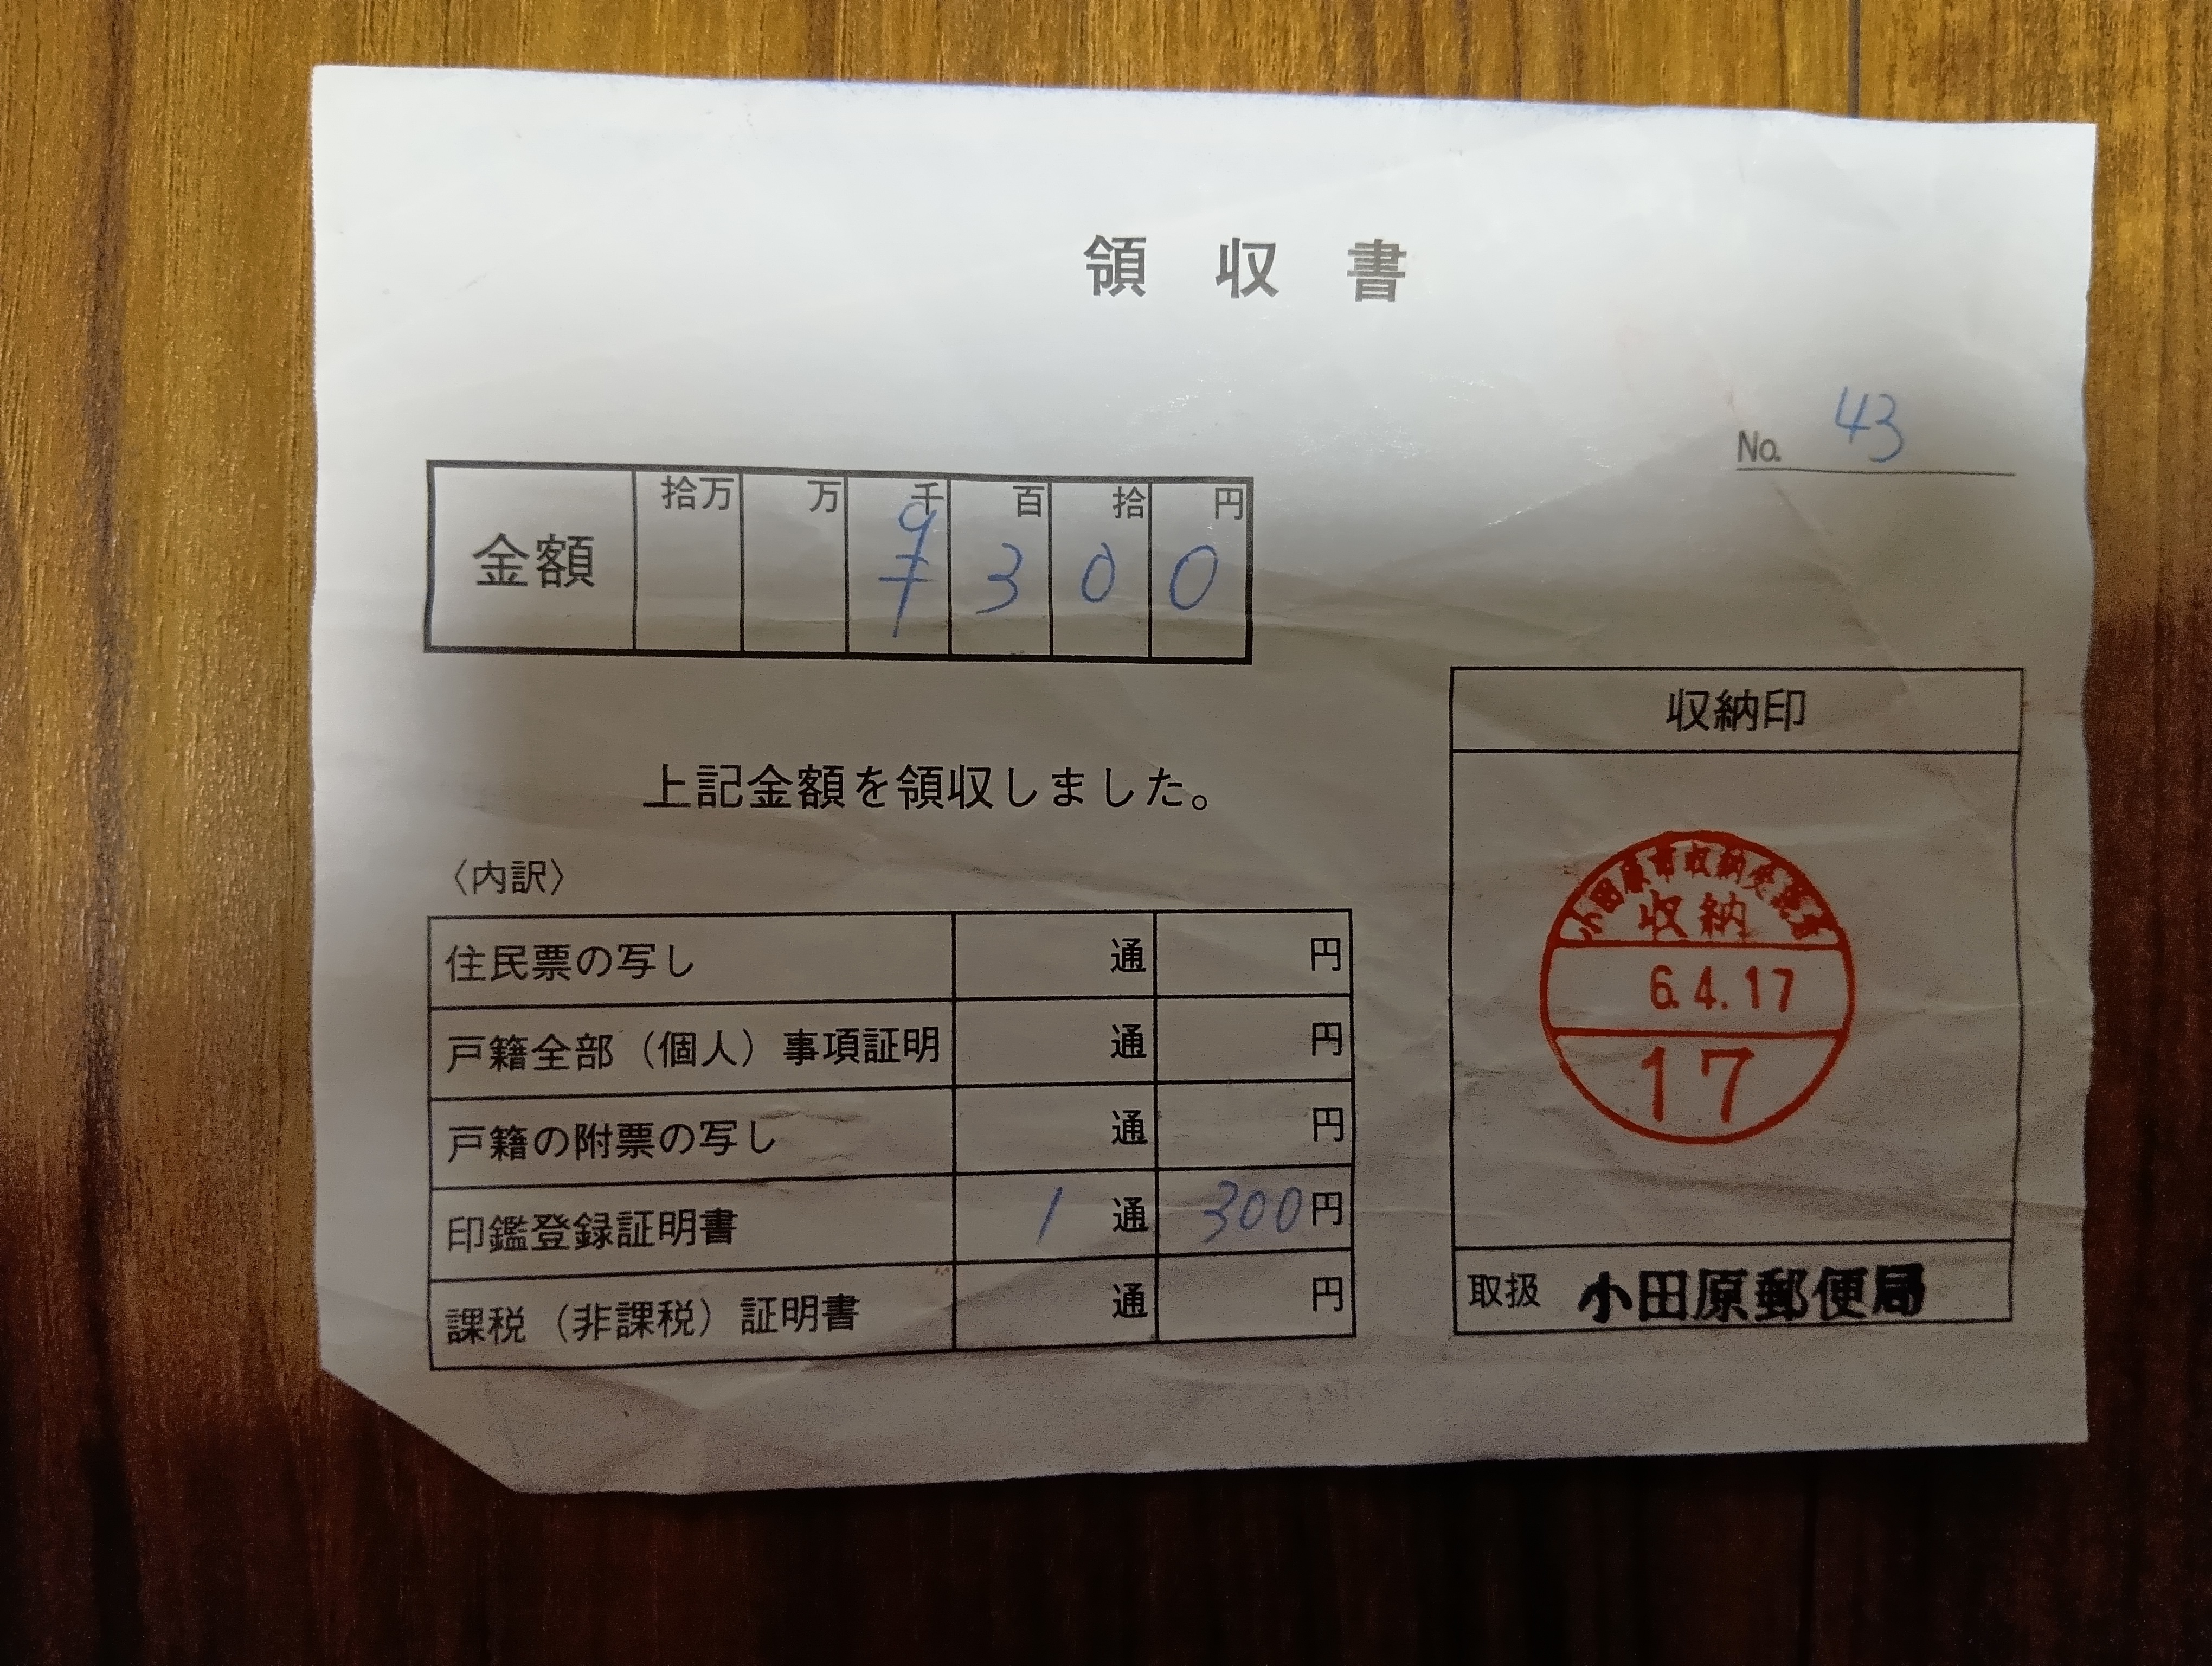 領 収 書
No. 43
金額 拾万 万 千 百 拾 円
3 0 0
上記金額を領収しました。
〈内訳〉
住民票の写し 通 円
戸籍全部（個人）事項証明 通 円
戸籍の附票の写し 通 円
印鑑登録証明書 1 通 300円
課税（非課税）証明書 通 円
収納印
小田原市収納
収納
6.4.17
17
取扱 小田原郵便局